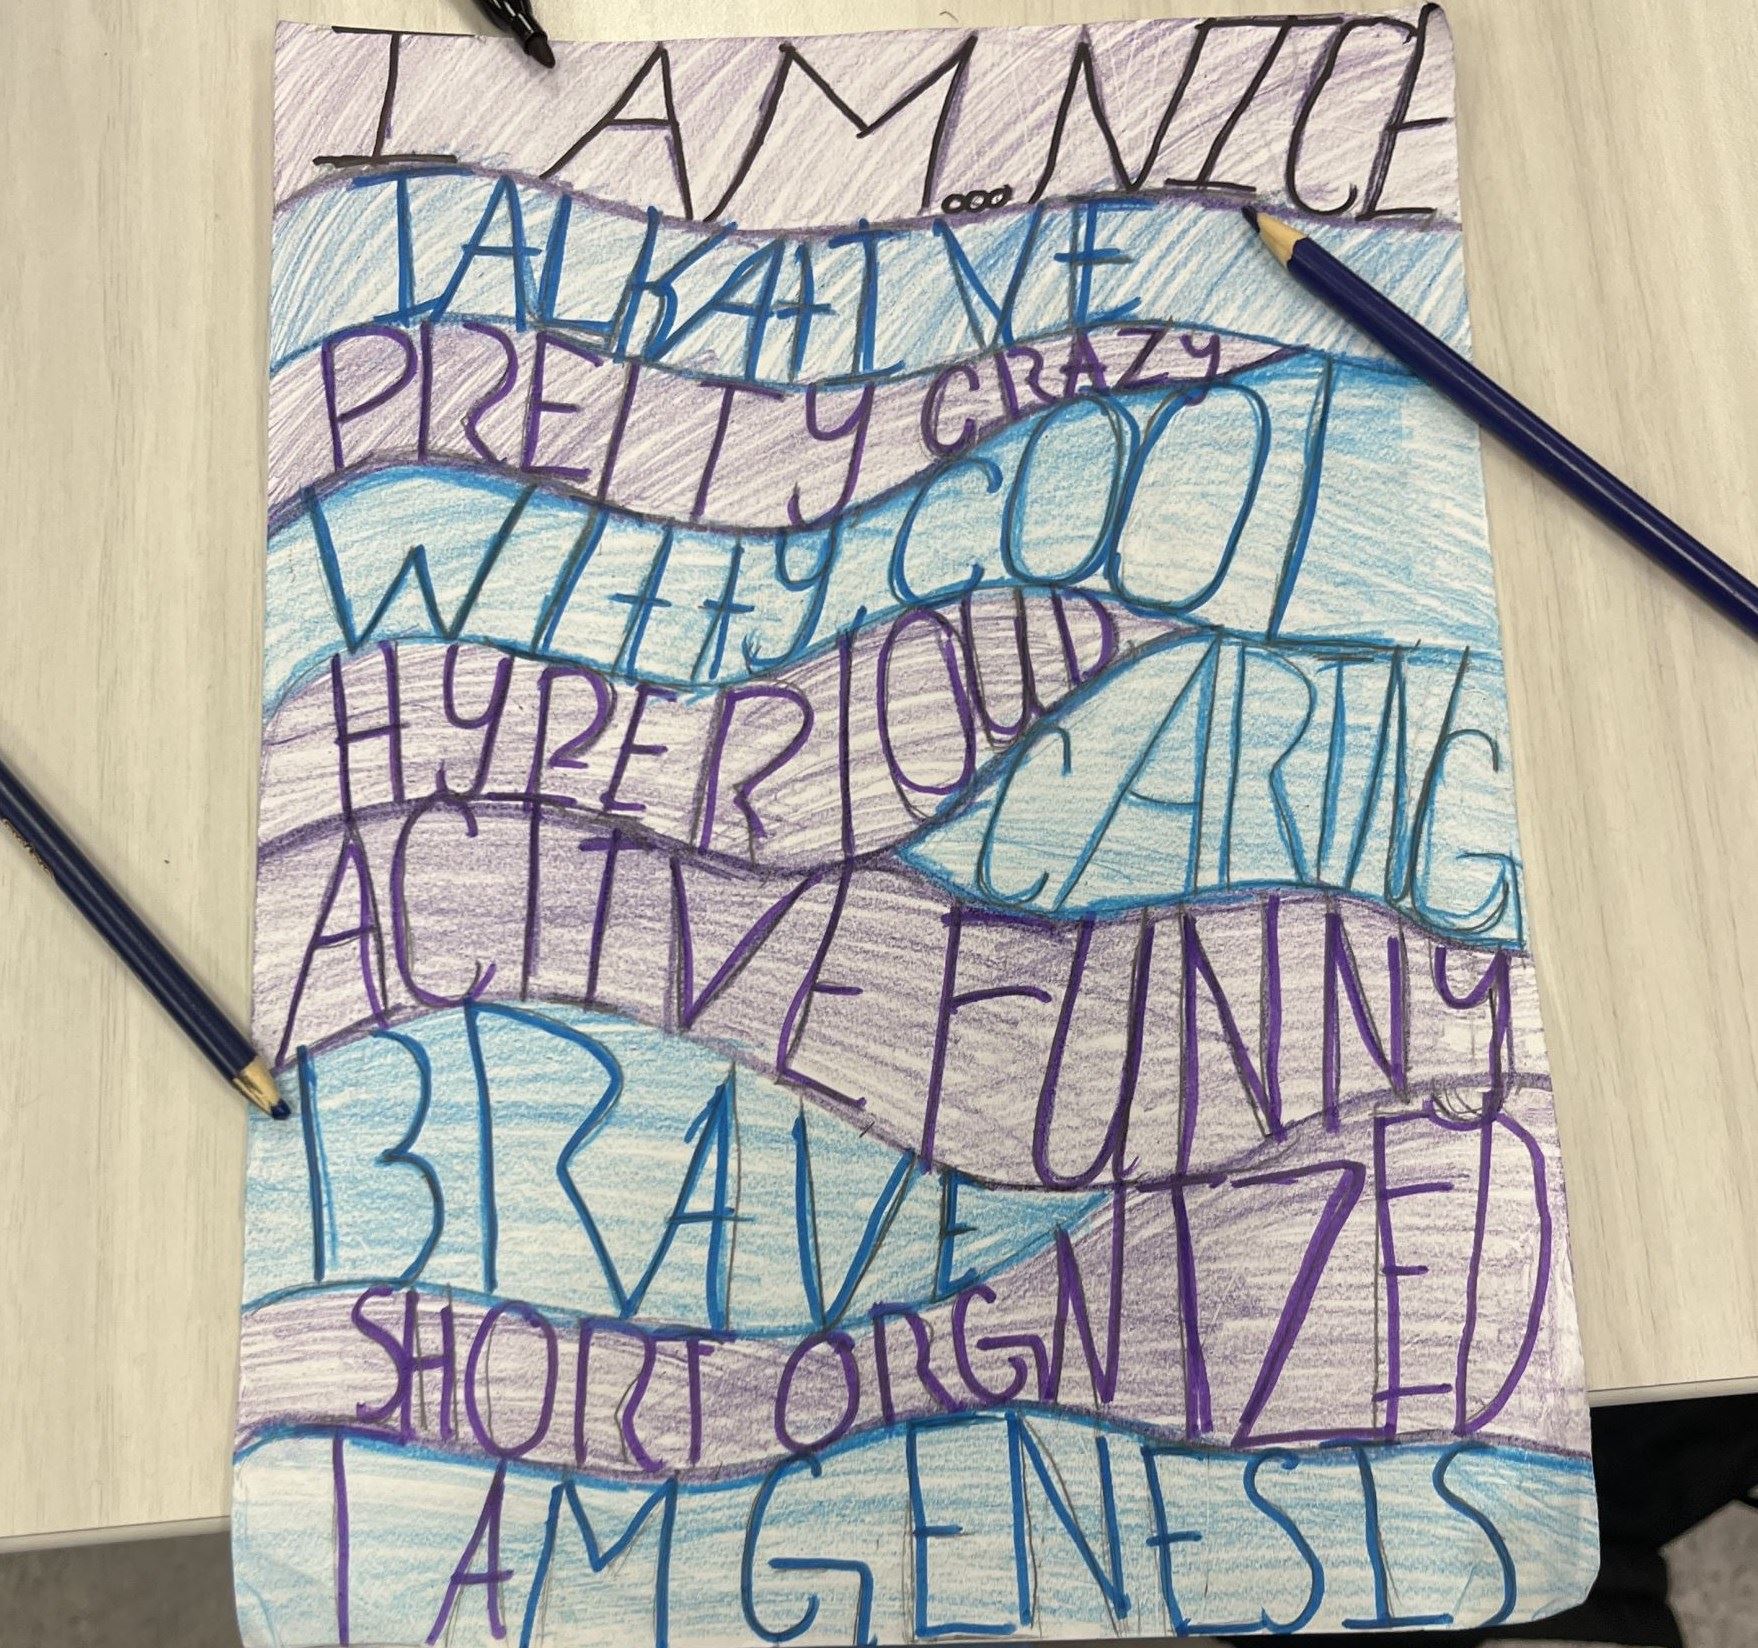 I AM... NICE
TALKATIVE
PRETTY CRAZY
WITTY COOL
HYPER LOUD
CARING
ACTIVE FUNNY
BRAVE
SHORT ORGNIZED
I AM GENESIS